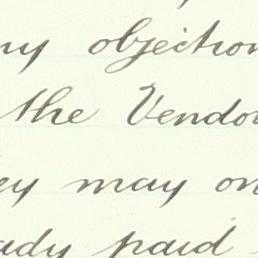 ny objection
the Vendo
ey may on
ady paid